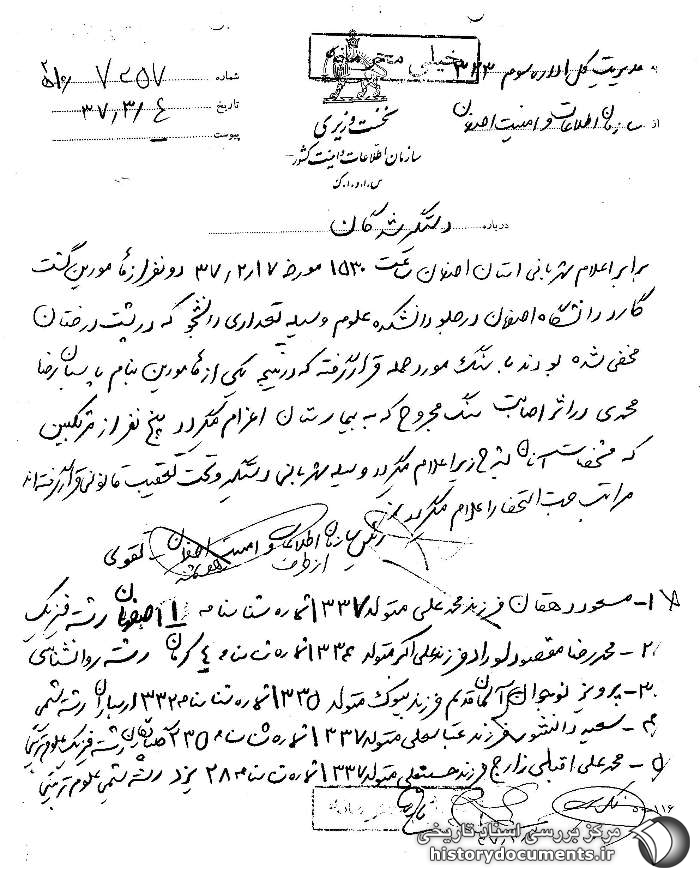 خیلی محرمانه
به مدیریت کل اداره سوم ۳۲۳
از سازمان اطلاعات و امنیت اصفهان
شماره
تاریخ ۳۷/۳/۴
پیوست
نخست وزیری
سازمان اطلاعات و امنیت کشور
س.ا.و.ا.ک
درباره دستگیرشدگان
برابر اعلام شهربانی استان اصفهان ساعت ۱۵۳۰ مورخه ۳۷/۲/۱۷ دو نفر از مامورین گشت
گارد دانشگاه اصفهان در جلو دانشکده علوم وسیله تعدادی دانشجو که در پشت درختان
مخفی شده بودند با سنگ مورد حمله قرار گرفته که در نتیجه یکی از مامورین بنام پاسبان رضا
محمدی در اثر اصابت سنگ مجروح که به بیمارستان اعزام میگردد پنج نفر از مرتکبین
که مشخصات آنان بشرح زیر اعلام میگردد وسیله شهربانی دستگیر و تحت تعقیب قانونی قرار گرفته‌اند
مراتب جهت استحضار اعلام میگردد
رئیس سازمان اطلاعات و امنیت اصفهان تقوی
از طرف
۱- مسعود دهقان فرزند محمدعلی متولد ۱۳۳۷ شماره شناسنامه ۱۱ اصفهان رشته فیزیک
۲- محمدرضا مقصودلو راد فرزند علی اکبر متولد ۱۳۳۶ شماره شناسنامه ۴ کرمان رشته روانشناسی
۳- پرویز نوجوان آلمان قدیم فرزند بیوک متولد ۱۳۳۵ شماره شناسنامه ۳۳۲ رشته شیمی
۴- سعید دانشور فرزند عباسعلی متولد ۱۳۳۷ شماره شناسنامه ۲۳۵ رشته فیزیک علوم تربیتی
۵- محمدعلی اقبلی زارچ فرزند حسنعلی متولد ۱۳۳۷ شماره شناسنامه ۲۸ یزد رشته شیمی علوم تربیتی
۱۱۶
مرکز بررسی اسناد تاریخی
historydocuments.ir